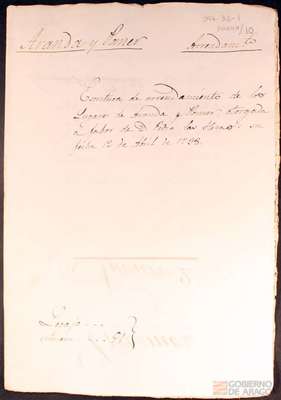 Aranda y Pomer
Arrendamto
Escritura de arrendamiento de los
Lugares de Aranda y Pomer otorgada
a favor de D. Pedro las Heras: su
fecha 12 de Abril de 1798.
Legajo
GOBIERNO
DE ARAGON